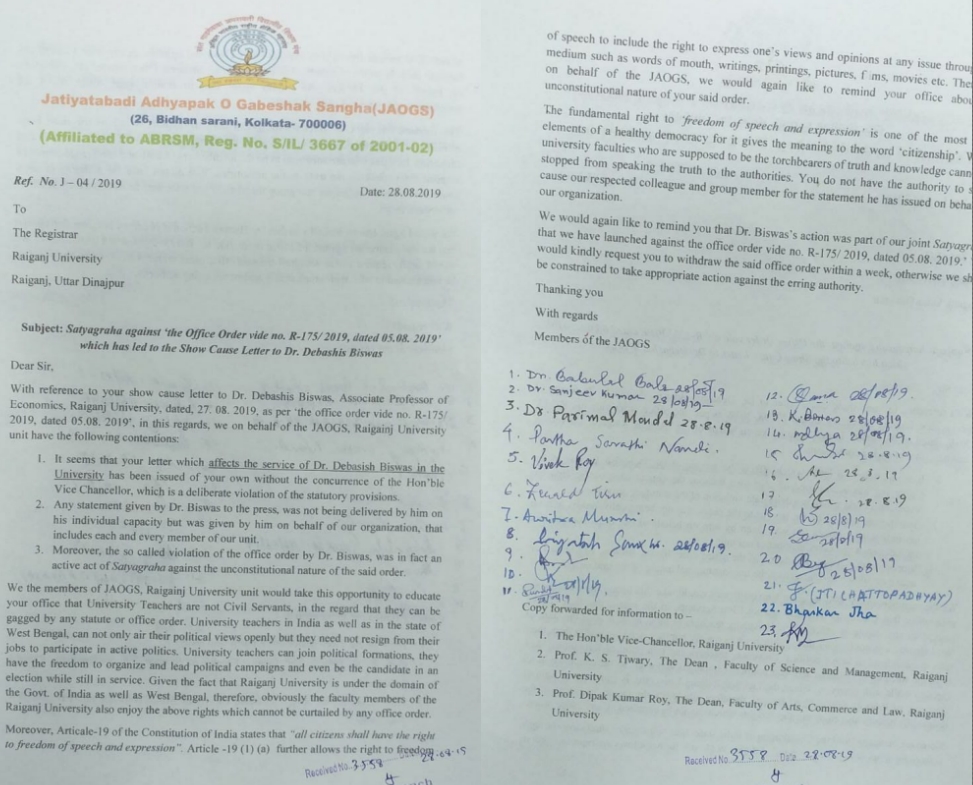 Jatiyatabadi Adhyapak O Gabeshak Sangha(JAOGS)
(26, Bidhan sarani, Kolkata- 700006)
(Affiliated to ABRSM, Reg. No. S/IL/ 3667 of 2001-02)
Ref. No. J – 04 / 2019
Date: 28.08.2019
To
The Registrar
Raiganj University
Raiganj, Uttar Dinajpur
Subject: Satyagraha against 'the Office Order vide no. R-175/ 2019, dated 05.08. 2019'
which has led to the Show Cause Letter to Dr. Debashis Biswas
Dear Sir,
With reference to your show cause letter to Dr. Debashis Biswas, Associate Professor of
Economics, Raiganj University, dated, 27. 08. 2019, as per 'the office order vide no. R-175/
2019, dated 05.08. 2019', in this regards, we on behalf of the JAOGS, Raigainj University
unit have the following contentions:
1. It seems that your letter which affects the service of Dr. Debasish Biswas in the
University has been issued of your own without the concurrence of the Hon'ble
Vice Chancellor, which is a deliberate violation of the statutory provisions.
2. Any statement given by Dr. Biswas to the press, was not being delivered by him on
his individual capacity but was given by him on behalf of our organization, that
includes each and every member of our unit.
3. Moreover, the so called violation of the office order by Dr. Biswas, was in fact an
active act of Satyagraha against the unconstitutional nature of the said order.
We the members of JAOGS, Raigainj University unit would take this opportunity to educate
your office that University Teachers are not Civil Servants, in the regard that they can be
gagged by any statute or office order. University teachers in India as well as in the state of
West Bengal, can not only air their political views openly but they need not resign from their
jobs to participate in active politics. University teachers can join political formations, they
have the freedom to organize and lead political campaigns and even be the candidate in an
election while still in service. Given the fact that Raiganj University is under the domain of
the Govt. of India as well as West Bengal, therefore, obviously the faculty members of the
Raiganj University also enjoy the above rights which cannot be curtailed by any office order.
Moreover, Articale-19 of the Constitution of India states that "all citizens shall have the right
to freedom of speech and expression". Article -19 (1) (a) further allows the right to freedom
Received No. 3558 Date 28-08-19
of speech to include the right to express one's views and opinions at any issue throu
medium such as words of mouth, writings, printings, pictures, f ms, movies etc. The
on behalf of the JAOGS, we would again like to remind your office abo
unconstitutional nature of your said order.
The fundamental right to 'freedom of speech and expression' is one of the most
elements of a healthy democracy for it gives the meaning to the word 'citizenship'.
university faculties who are supposed to be the torchbearers of truth and knowledge cann
stopped from speaking the truth to the authorities. You do not have the authority to s
cause our respected colleague and group member for the statement he has issued on beha
our organization.
We would again like to remind you that Dr. Biswas's action was part of our joint Satyagr
that we have launched against the office order vide no. R-175/ 2019, dated 05.08. 2019.'
would kindly request you to withdraw the said office order within a week, otherwise we sh
be constrained to take appropriate action against the erring authority.
Thanking you
With regards
Members of the JAOGS
1. Dr. Babulal Bala 28/08/19
2. Dr. Sanjeev Kumar 28/08/19
3. Dr Parimal Mondal 28.8.19
4. Partha Sarathi Nandi.
5. Vivek Roy
6.
7.
8. 28/08/19.
9.
10.
11.
12. 28/08/19.
13. K. Barman 28/08/19
14. 28/08/19.
15 28.8.19
16 28.8.19
17 28.8.19
18 28/8/19
19. 28/8/19
20. 28/08/19
21. (JTI CHATTOPADHYAY)
22. Bhaskar Jha
23.
Copy forwarded for information to –
1. The Hon'ble Vice-Chancellor, Raiganj University
2. Prof. K. S. Tiwary, The Dean , Faculty of Science and Management, Raiganj
University
3. Prof. Dipak Kumar Roy, The Dean, Faculty of Arts, Commerce and Law, Raiganj
University
Received No 3558 Date 28-08-19